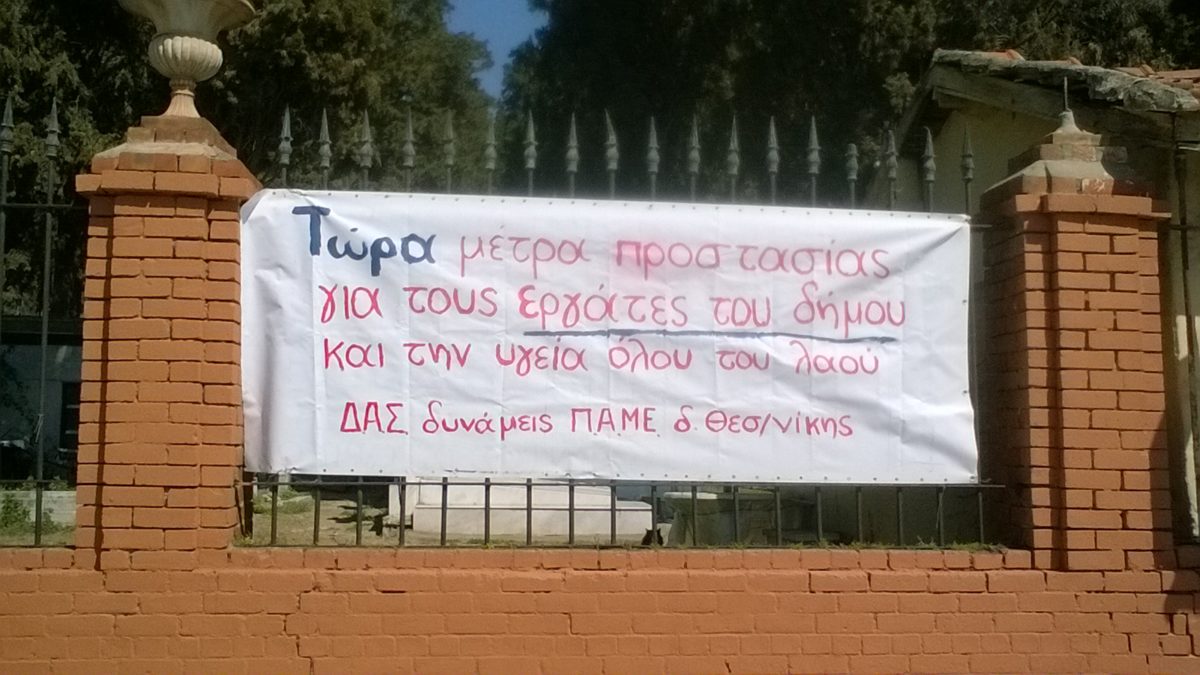 Τώρα μέτρα προστασίας
για τους εργάτες του δήμου
και την υγεία όλου του λαού
ΔΑΣ δυνάμεις Π.Α.ΜΕ δ. Θεσ/νίκης